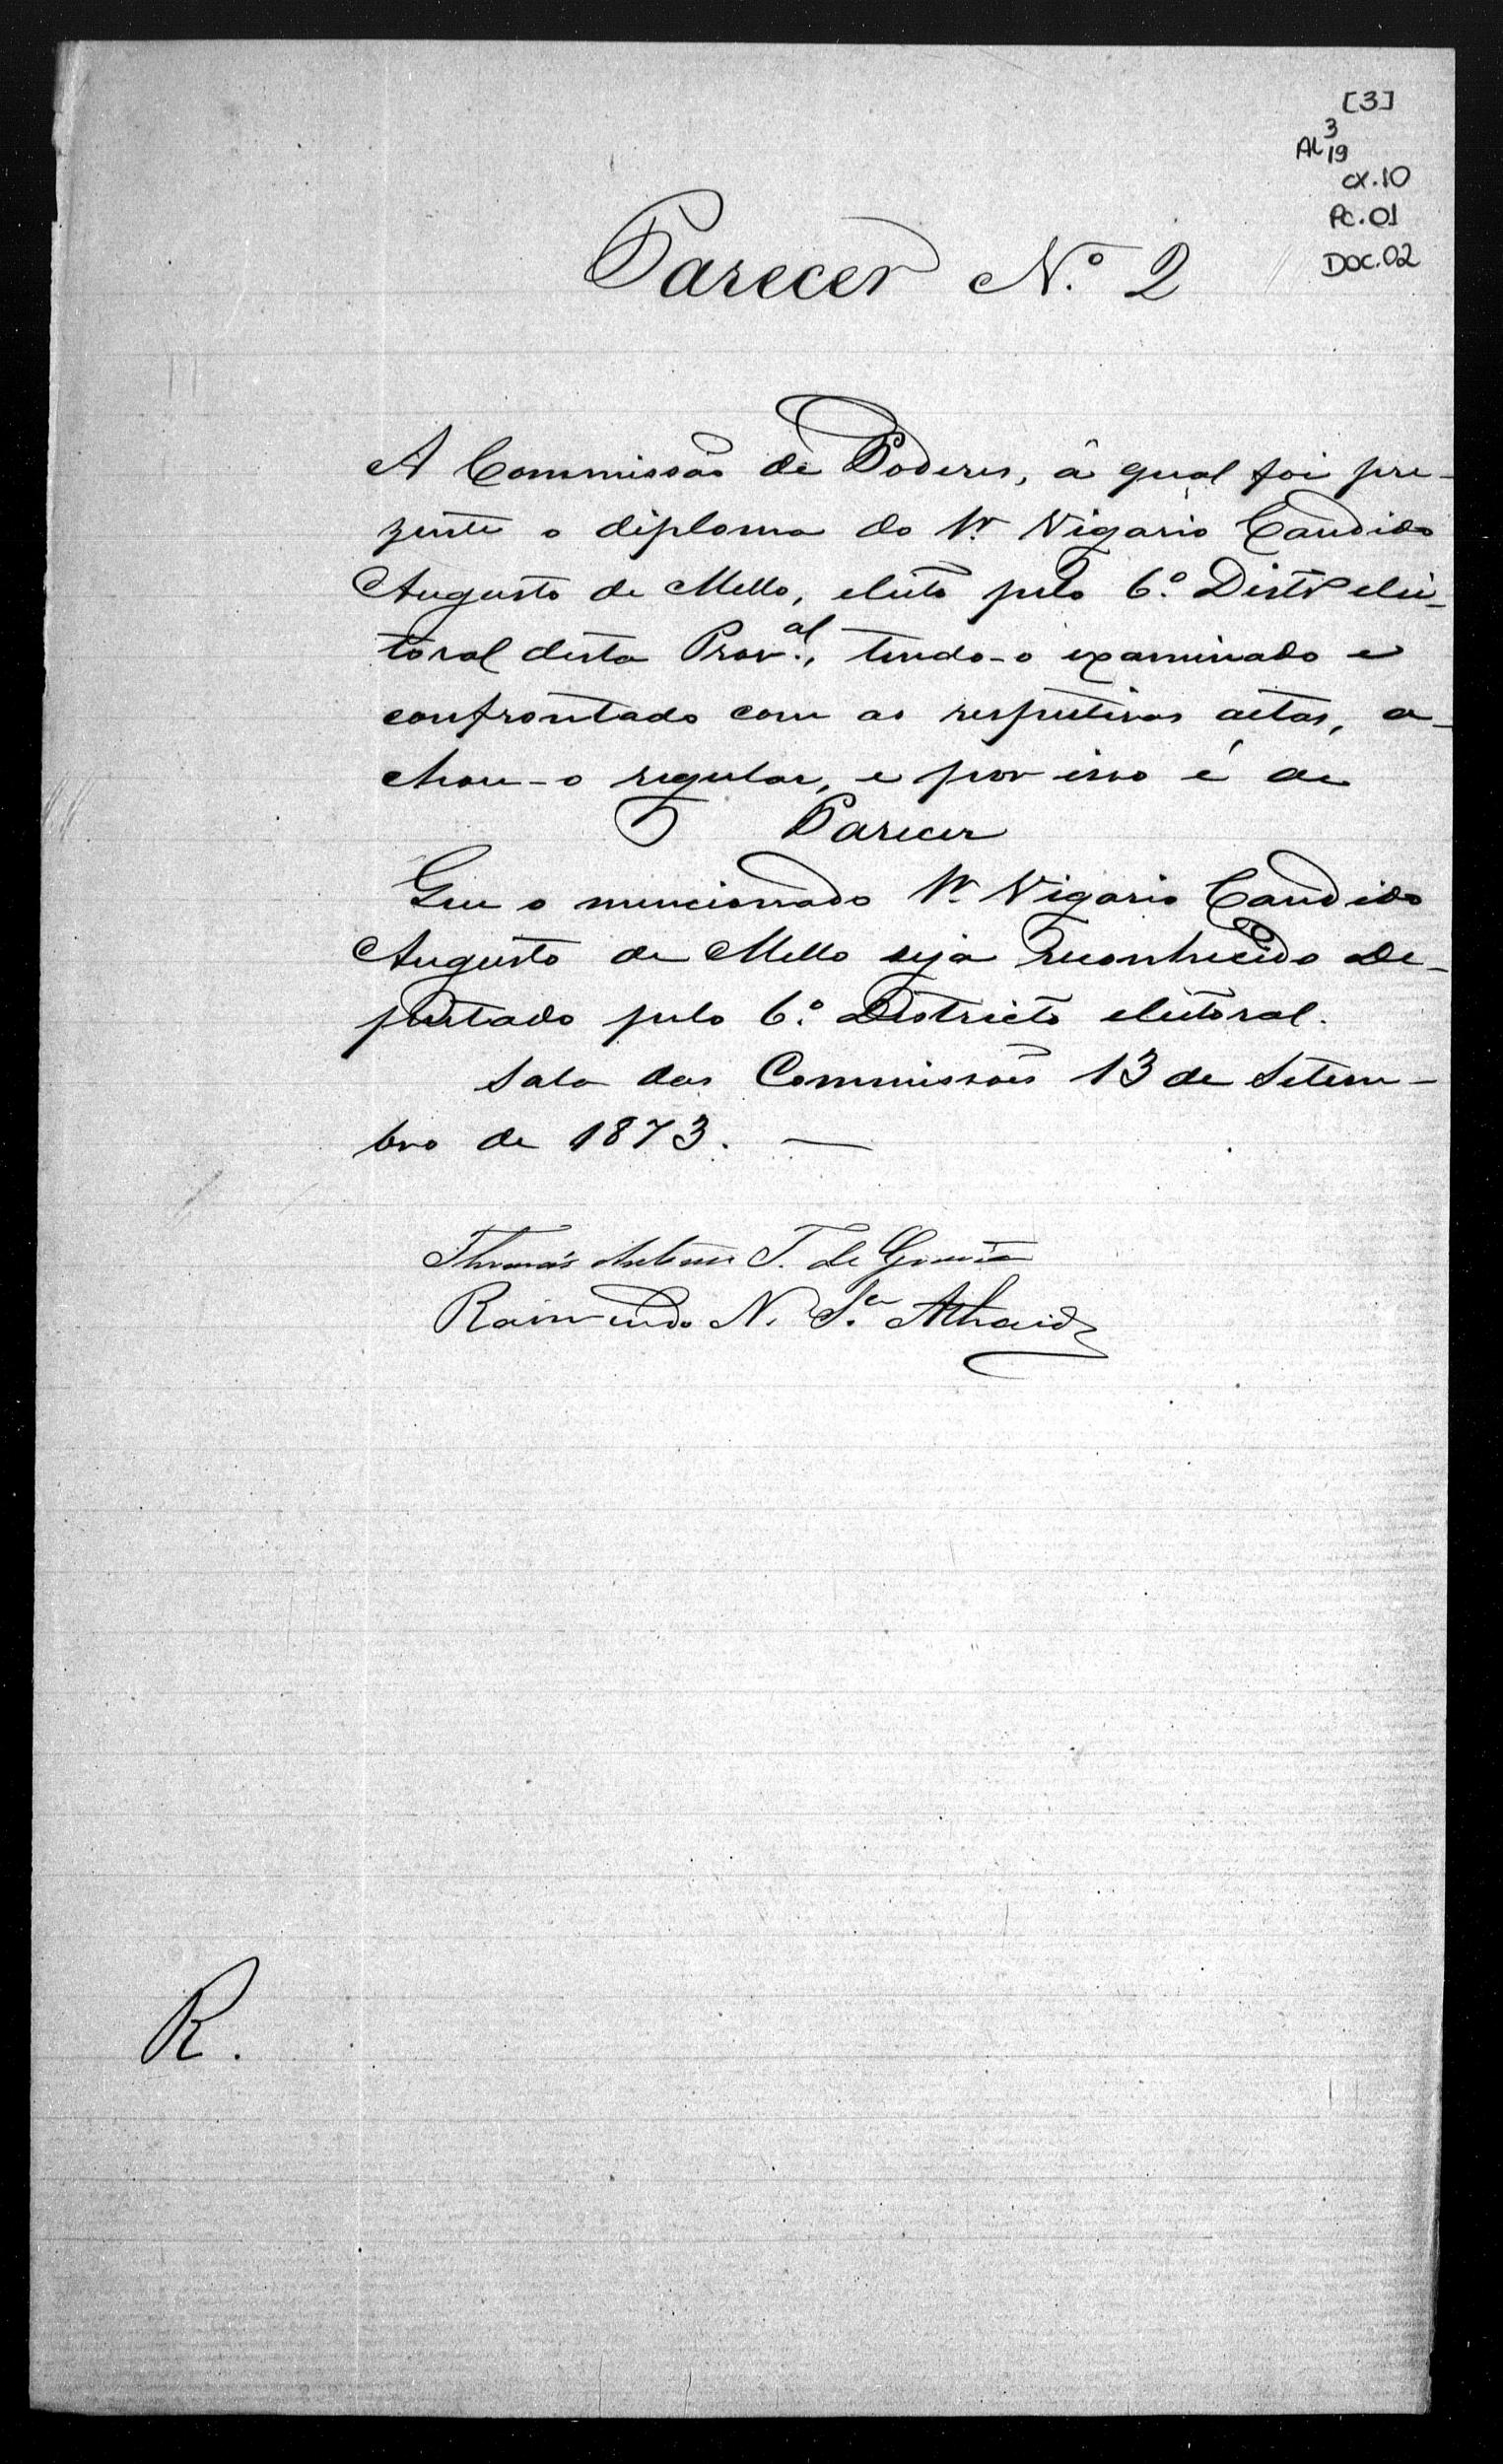 [3]
AL 3
19
cx.10
Pc.01
Doc.02
Parecer N.º 2
A Commissão de Poderes, á qual foi pre-
zente o diploma do Vigario Candido
Augusto de Mello, eleito pelo 6.º Distr elei-
toral desta Prov.al, tendo-o examinado e
confrontado com as respectivas actas, a-
chou-o regular, e por isso é de
Parecer
Que o mencionado Vigario Candido
Augusto de Mello seja reconhecido De-
putado pelo 6.º Districto eleitoral.
Sala das Commissões 13 de Setem-
bro de 1873. —
Thomás Antonio T. de Gouvêa
Raimundo N. S.a Athaide
R.